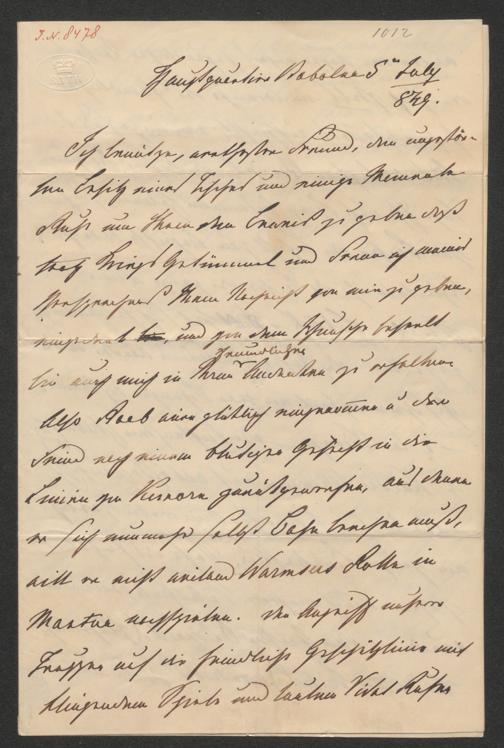 J.N. 8478
1012
Hauptquartier Babolna 5t July
849.
Ich benütze, verehrtester Freund, den ungestör-
ten Besitz eines Tisches und einige Momente
Ruhe um Ihnen den Beweis zu geben daß
trotz Kriegs Getümmel und ich meines
Versprechens Ihnen Nachricht von mir zu geben,
eingedenk, und von dem Wunsche beseelt
bin auch mich in Ihrem freundlichen Andenken zu erhalten
Also Raab wäre glücklich eingenommen u der
Feind nach einem blutigen Gefecht in die
Linien von Komorn zurückgeworfen, aus denen
er sich nunmehr selbst Bahn brechen muß,
will er nicht weiland Wurmsers Rolle in
Mantua nachspielen. Der Angriff unserer
Truppen auf die feindliche Geschützlinie mit
klingendem Spiele und lauten Vivat Rufen